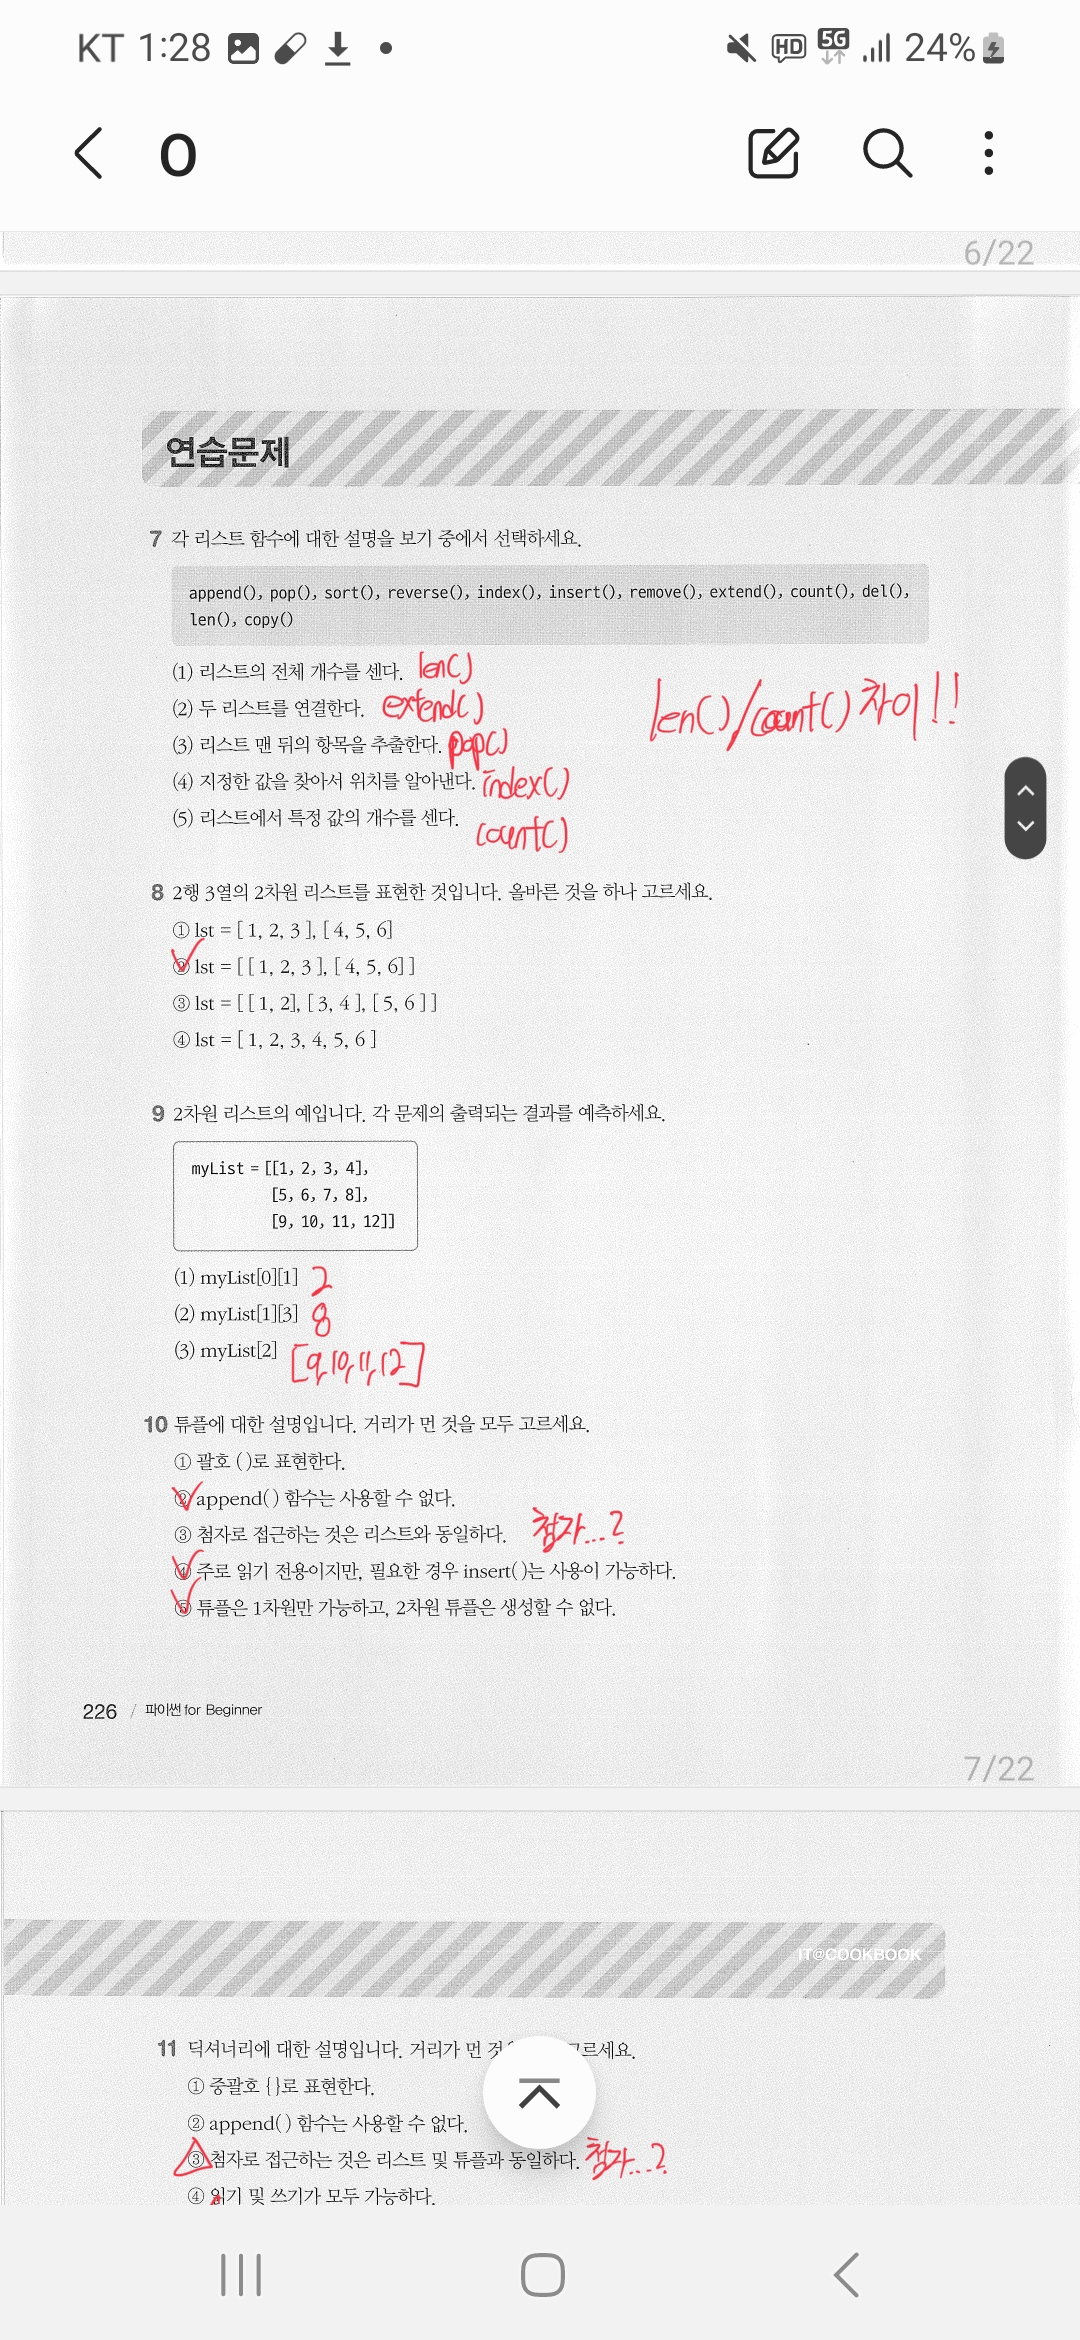 KT 1:28
HD 5G 24%
O
6/22
연습문제
7 각 리스트 함수에 대한 설명을 보기 중에서 선택하세요.
append(), pop(), sort(), reverse(), index(), insert(), remove(), extend(), count(), del(),
len(), copy()
(1) 리스트의 전체 개수를 센다. len()
(2) 두 리스트를 연결한다. extend()
len()/count() 차이!!
(3) 리스트 맨 뒤의 항목을 추출한다. pop()
(4) 지정한 값을 찾아서 위치를 알아낸다. index()
(5) 리스트에서 특정 값의 개수를 센다. count()
8 2행 3열의 2차원 리스트를 표현한 것입니다. 올바른 것을 하나 고르세요.
① lst = [ 1, 2, 3 ], [ 4, 5, 6]
② lst = [ [ 1, 2, 3 ], [ 4, 5, 6] ]
③ lst = [ [ 1, 2], [ 3, 4 ], [ 5, 6 ] ]
④ lst = [ 1, 2, 3, 4, 5, 6 ]
9 2차원 리스트의 예입니다. 각 문제의 출력되는 결과를 예측하세요.
myList = [[1, 2, 3, 4],
[5, 6, 7, 8],
[9, 10, 11, 12]]
(1) myList[0][1] 2
(2) myList[1][3] 8
(3) myList[2] [9, 10, 11, 12]
10 튜플에 대한 설명입니다. 거리가 먼 것을 모두 고르세요.
① 괄호 ( )로 표현한다.
② append( ) 함수는 사용할 수 없다.
③ 첨자로 접근하는 것은 리스트와 동일하다. 첨자...?
④ 주로 읽기 전용이지만, 필요한 경우 insert( )는 사용이 가능하다.
⑤ 튜플은 1차원만 가능하고, 2차원 튜플은 생성할 수 없다.
226 / 파이썬 for Beginner
7/22
IT@COOKBOOK
11 딕셔너리에 대한 설명입니다. 거리가 먼 고르세요.
① 중괄호 { }로 표현한다.
② append( ) 함수는 사용할 수 없다.
③ 첨자로 접근하는 것은 리스트 및 튜플과 동일하다. 첨자...?
④ 읽기 및 쓰기가 모두 가능하다.